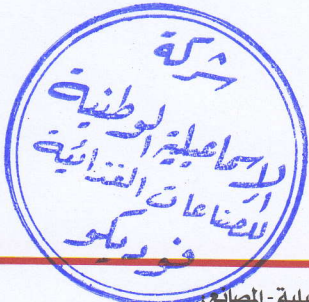 شركة
الإسماعيلية الوطنية
للصناعات الغذائية
فوديكو
المصانع